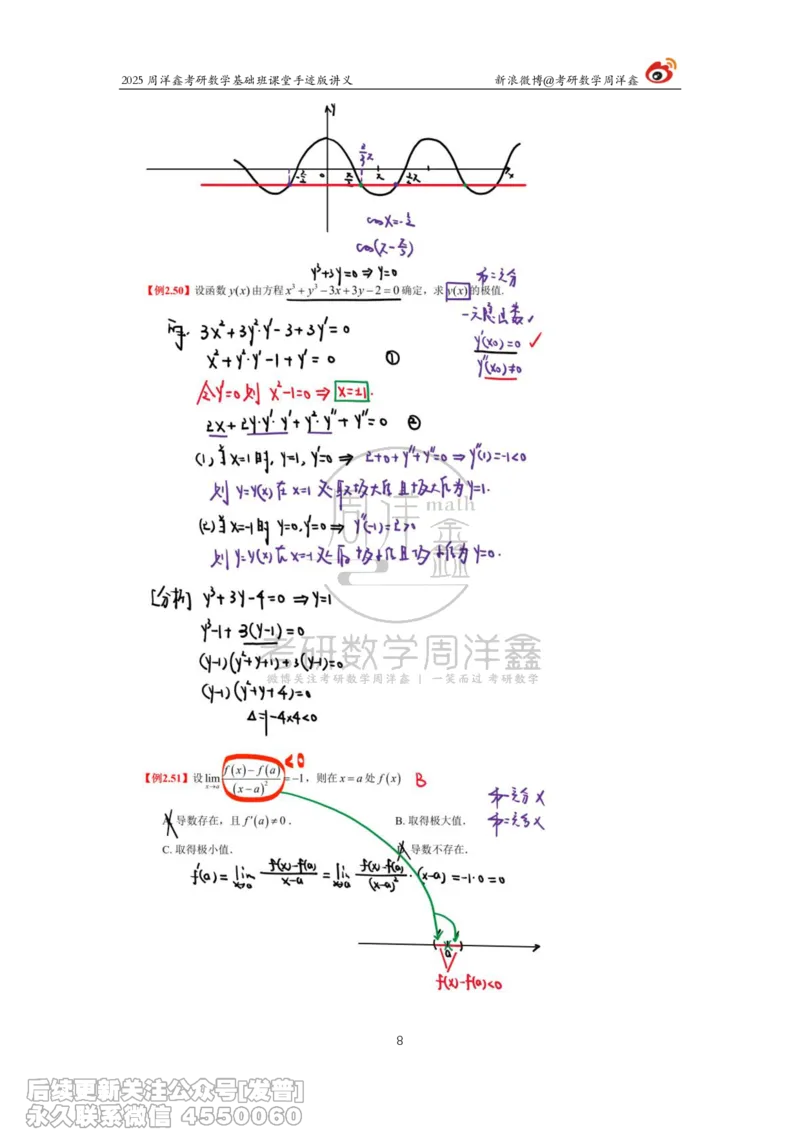 2025 周洋鑫考研数学基础班课堂手迹版讲义 新浪微博@考研数学周洋鑫
y
2/3π
-π/2 0 π/2 π 3/2π x
cosx=-1/2
cos(π-π/3)
y³+3y=0⇒y=0
【例2.50】设函数 y(x) 由方程 x³+y³-3x+3y-2=0 确定，求 y(x) 的极值.
第二充分
一元隐函数
y'(x₀)=0 ✓
y''(x₀)≠0
解: 3x²+3y²·y'-3+3y'=0
x²+y²·y'-1+y'=0 ①
令y'=0则 x²-1=0⇒x=±1.
2x+2y·y'·y'+y²·y''+y''=0 ②
(1)当x=1时, y=1, y'=0⇒ 2+0+y''+y''=0⇒y''(1)=-1<0
则 y=y(x)在x=1处取极大值且极大值为y=1.
(2)当x=-1时 y=0,y'=0⇒ y''(-1)=2>0
则y=y(x)在x=-1处取极小值且极小值为y=0.
[分析] y³+3y-4=0⇒y=1
y³-1+3(y-1)=0
(y-1)(y²+y+1)+3(y-1)=0
(y-1)(y²+y+4)=0
Δ=1-4×4<0
周洋鑫
math
考研数学周洋鑫
微博关注考研数学周洋鑫 | 一笑而过 考研数学
<0
【例2.51】设 lim x→a (f(x)-f(a))/(x-a)² =-1，则在 x=a 处 f(x) B
第一充分 X
A. 导数存在，且 f'(a)≠0. B. 取得极大值. 第二充分 X
C. 取得极小值. D. 导数不存在.
f'(a)=lim x→a (f(x)-f(a))/(x-a) = lim x→a (f(x)-f(a))/(x-a)² ·(x-a)=-1·0=0
( a )
f(x)-f(a)<0
8
后续更新关注公众号[发普]
永久联系微信 4550060